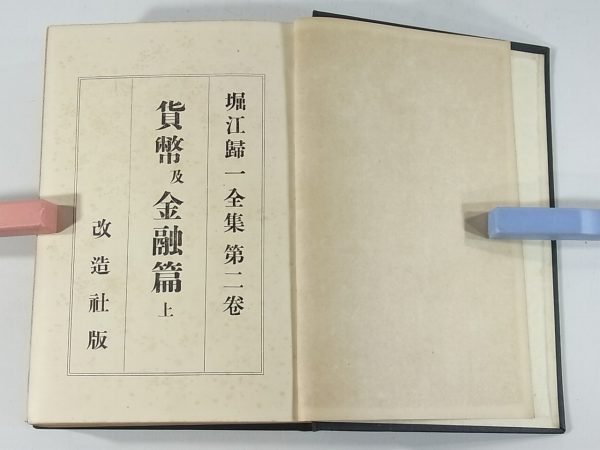 堀江歸一全集 第二卷
貨幣及金融篇 上
改造社版